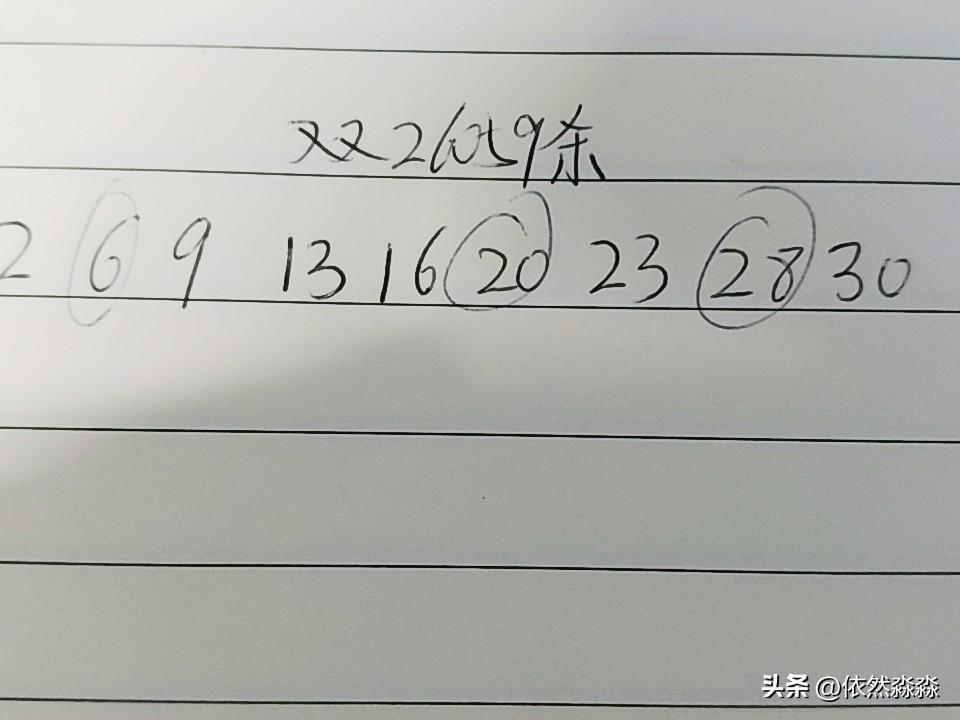 双双26059杀
2 6 9 13 16 20 23 28 30
头条 @依然淼淼